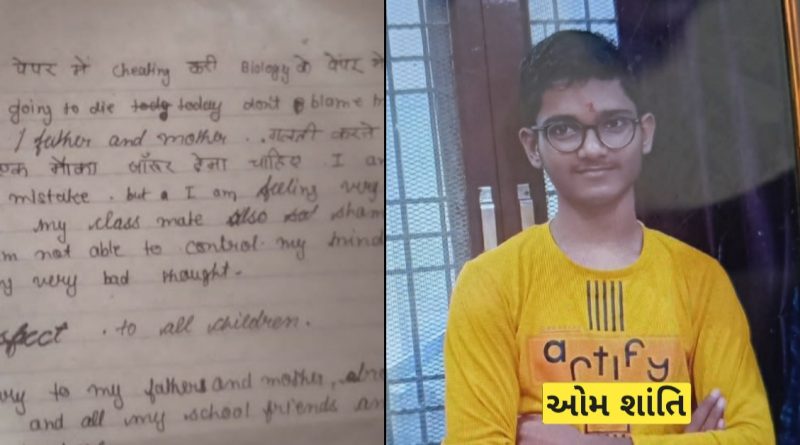 पेपर में cheating करी Biology के पेपर में
going to die today don't blame
father and mother . . गलती करने
एक मौका जरूर देना चाहिए . I am
mistake . but a I am feeling very
my class mate also
not able to control my mind
very bad thought .
to all children .
to my fathers and mother,
and all my school friends
artify
ઓમ શાંતિ